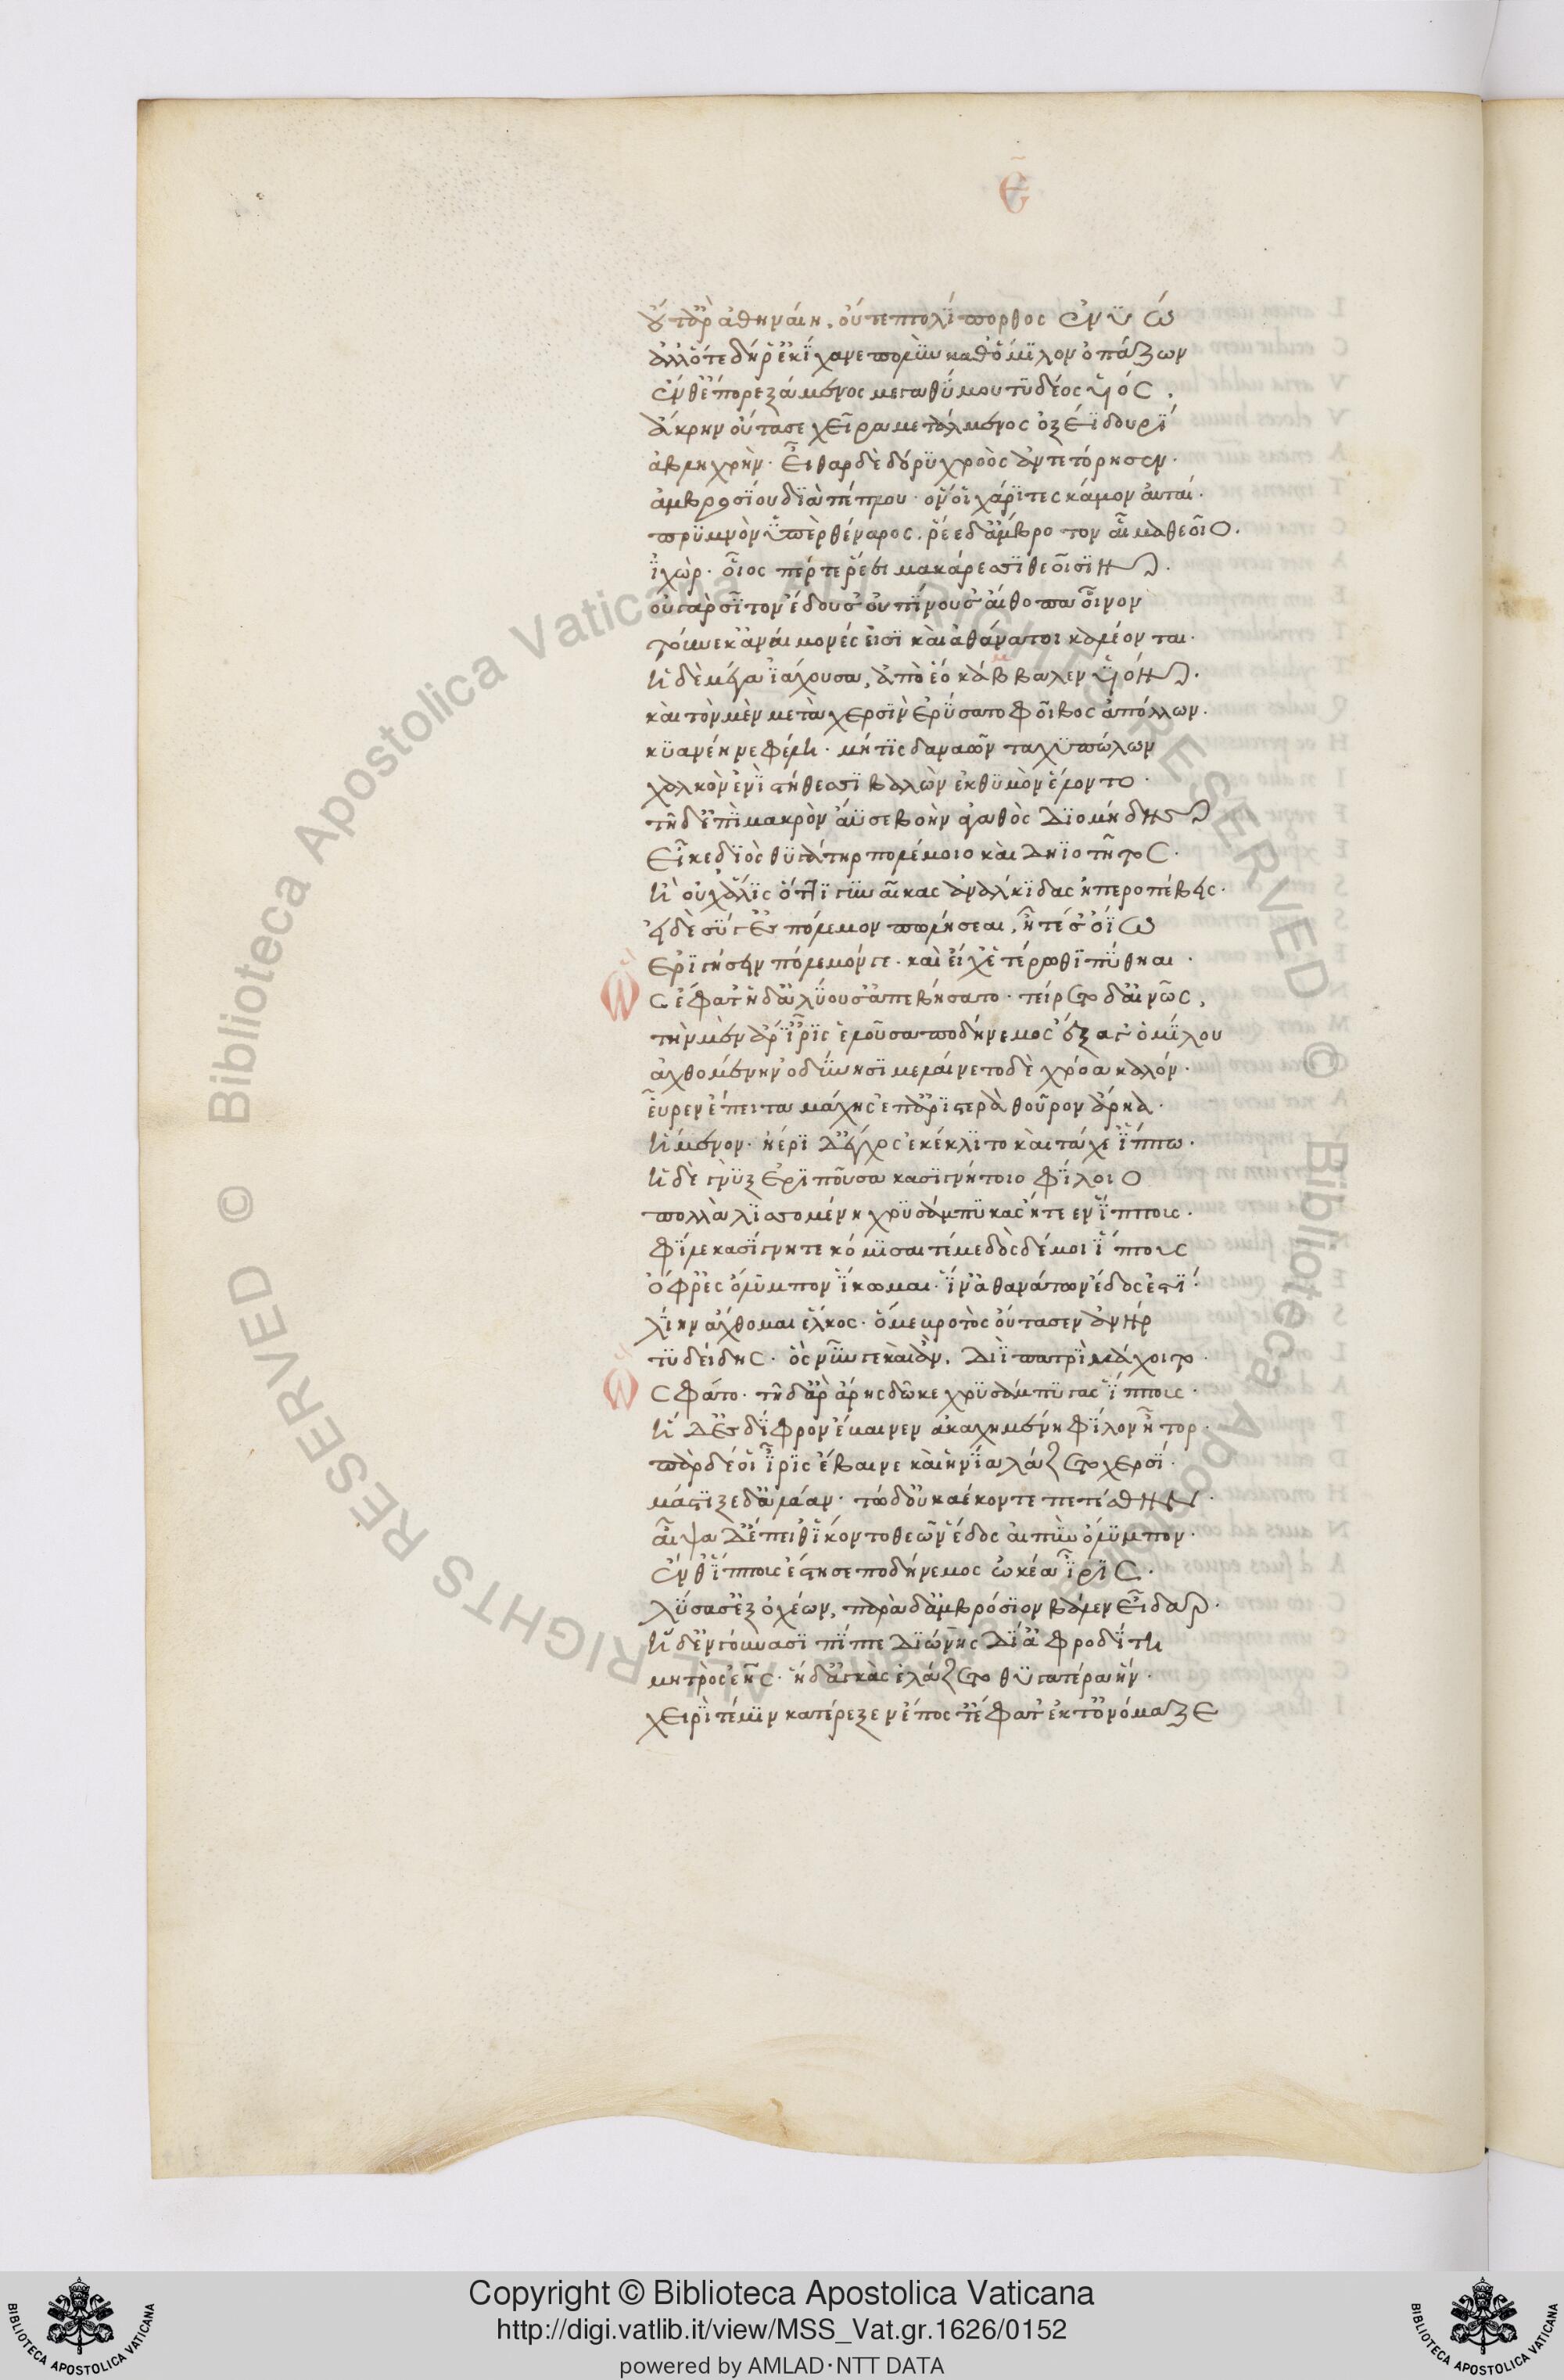 Ε̄
οὔτ' ἂρ ἀθηναίη. οὔτε πτολίπορθος ἐνυώ
ἀλλ' ὅτε δή ῥ' ἐκίχανε πολὺν καθ' ὅμιλον ὀπάζων
ἔνθ' ἐπορεξάμενος μεγαθύμου τυδέος υἱός.
ἄκρην οὔτασε χεῖρα μετάλμενος ὀξέϊ δουρί
ἀβληχρήν. εἶθαρ δὲ δόρυ χροὸς ἀντετόρησεν.
ἀμβροσίου διὰ πέπλου. ὅν οἱ χάριτες κάμον αὐταί.
πρυμνὸν ὑπὲρ θέναρος. ῥέε δ' ἄμβροτον αἷμα θεοῖο.
ἰχώρ. οἷος πέρ τε ῥέει μακάρεσσι θεοῖσιν.
οὐ γὰρ σῖτον ἔδουσ' οὐ πίνουσ' αἴθοπα οἶνον
τοὔνεκ' ἀναίμονές εἰσι καὶ ἀθάνατοι καλέονται.
ἡ δὲ μέγα ἰάχουσα, ἀπὸ ἕο κάββαλεν υἱόν.
καὶ τὸν μὲν μετὰ χερσὶν ἐρύσατο φοῖβος ἀπόλλων.
κυανέη νεφέλῃ. μή τις δαναῶν ταχυπώλων
χαλκὸν ἐνὶ στήθεσσι βαλὼν ἐκ θυμὸν ἕλοιτο.
τῇ δ' ἐπὶ μακρὸν ἄϋσε βοὴν ἀγαθὸς διομήδης
εἶκε διὸς θύγατερ πολέμοιο καὶ δηϊοτῆτος.
ἦ οὐχ ἅλις ὅττι γυναῖκας ἀνάλκιδας ἠπεροπεύεις.
εἰ δὲ σύ γ' ἐς πόλεμον πωλήσεαι, ἦ τέ σ' ὀΐω
ῥιγήσειν πόλεμόν γε. καὶ εἴ χ' ἑτέρωθι πύθηαι.
Ὣς ἔφατ' ἡ δ' ἀλύουσ' ἀπεβήσατο. τείρετο δ' αἰνῶς,
τὴν μὲν ἄρ' ἶρις ἑλοῦσα ποδήνεμος ἔξαγ' ὁμίλου
ἀχθομένην ὀδύνῃσι μελαίνετο δὲ χρόα καλόν.
εὗρεν ἔπειτα μάχης ἐπ' ἀριστερὰ θοῦρον ἄρηα.
ἥμενον. ἠέρι δ' ἔγχος ἐκέκλιτο καὶ ταχέ' ἵππω.
ἡ δὲ γνὺξ ἐριποῦσα κασιγνήτοιο φίλοιο
πολλὰ λισσομένη χρυσάμπυκας ᾔτεεν ἵππους.
φίλε κασίγνητε κόμισαί τέ με δὸς δέ μοι ἵππους
ὄφρ' ἐς ὄλυμπον ἵκωμαι. ἵν' ἀθανάτων ἕδος ἐστί.
λίην ἄχθομαι ἕλκος. ὅ με βροτὸς οὔτασεν ἀνήρ
τυδείδης. ὃς νῦν γε καὶ ἂν, διὶ πατρὶ μάχοιτο.
Ὣς φάτο. τῇ δ' ἄρ' ἄρης δῶκε χρυσάμπυκας ἵππους.
ἡ δ' ἐς δίφρον ἔβαινεν ἀκαχημένη φίλον ἦτορ.
πὰρ δέ οἱ ἶρις ἔβαινε καὶ ἡνία λάζετο χερσί.
μάστιξε δ' ἐλάαν. τὼ δ' οὐκ ἀέκοντε πετέσθην.
αἶψα δ' ἔπειθ' ἵκοντο θεῶν ἕδος αἰπὺν ὄλυμπον.
ἔνθ' ἵππους ἔστησε ποδήνεμος ὠκέα ἶρις.
λύσασ' ἐξ ὀχέων, παρὰ δ' ἀμβρόσιον βάλεν εἶδαρ.
ἡ δ' ἐν γούνασι πῖπτε διώνης δῖ' ἀφροδίτη
μητρὸς ἑῆς. ἡ δ' ἀγκὰς ἐλάζετο θυγατέρα ἥν.
χειρί τέ μιν κατέρεξεν ἔπος τ' ἔφατ' ἐκ τ' ὀνόμαζε
Copyright © Biblioteca Apostolica Vaticana
http://digi.vatlib.it/view/MSS_Vat.gr.1626/0152
powered by AMLAD·NTT DATA